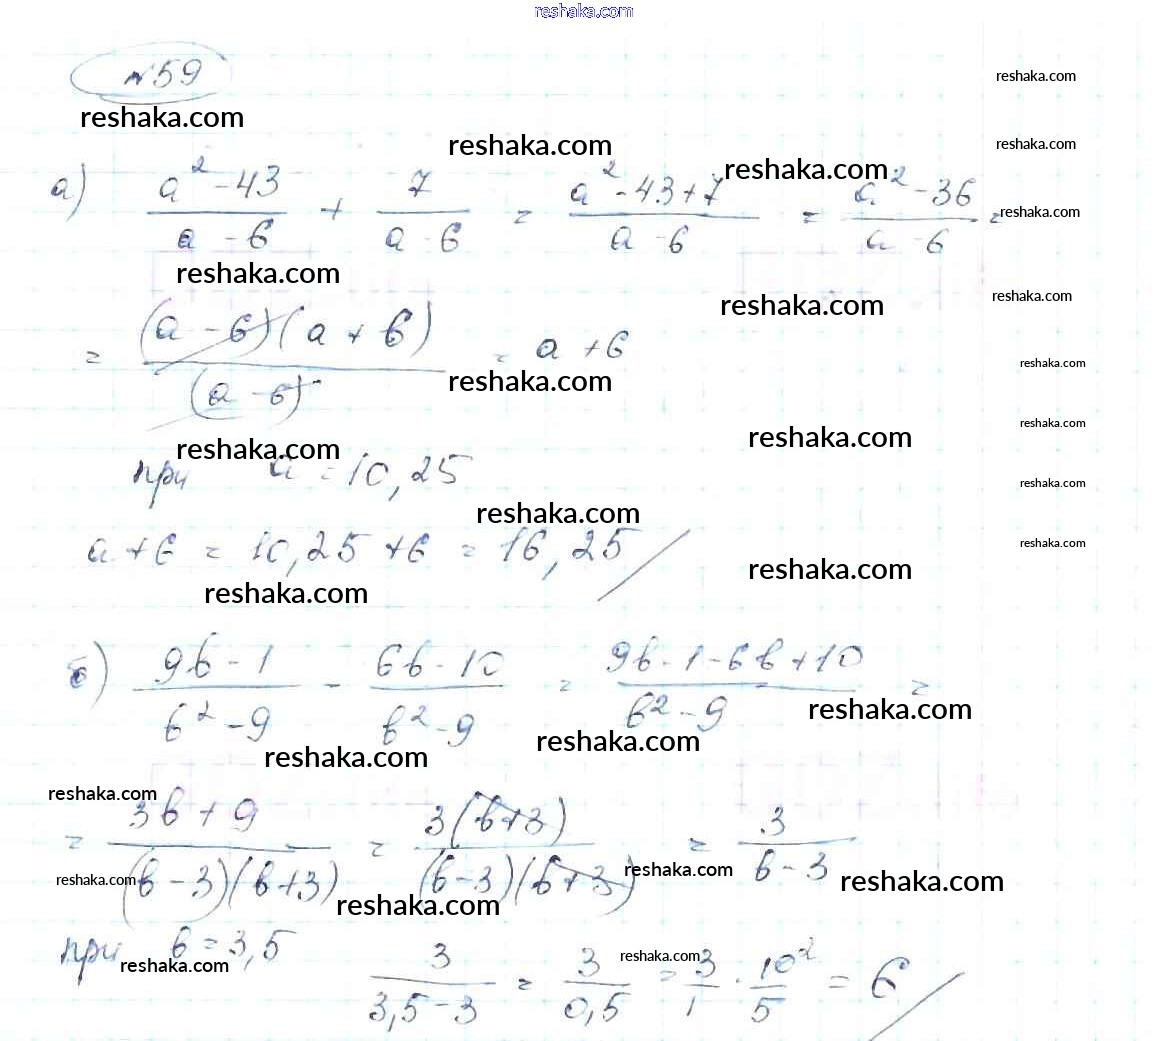 reshaka.com
№59
reshaka.com
reshaka.com
reshaka.com
reshaka.com
reshaka.com
reshaka.com
а) (a² - 43)/(a - 6) + 7/(a - 6) = (a² - 43 + 7)/(a - 6) = (a² - 36)/(a - 6) =
reshaka.com
reshaka.com
reshaka.com
reshaka.com
= (a - 6)(a + 6)/(a - 6) = a + 6
reshaka.com
reshaka.com
reshaka.com
reshaka.com
reshaka.com
при a = 10,25
reshaka.com
reshaka.com
a + 6 = 10,25 + 6 = 16,25
reshaka.com
reshaka.com
reshaka.com
б) (9b - 1)/(b² - 9) - (6b - 10)/(b² - 9) = (9b - 1 - 6b + 10)/(b² - 9) =
reshaka.com
reshaka.com
reshaka.com
reshaka.com
= (3b + 9)/((b - 3)(b + 3)) = 3(b + 3)/((b - 3)(b + 3)) = 3/(b - 3)
reshaka.com
reshaka.com
reshaka.com
reshaka.com
при b = 3,5
reshaka.com
reshaka.com
3/(3,5 - 3) = 3/0,5 = 3/1 · 10²/5 = 6